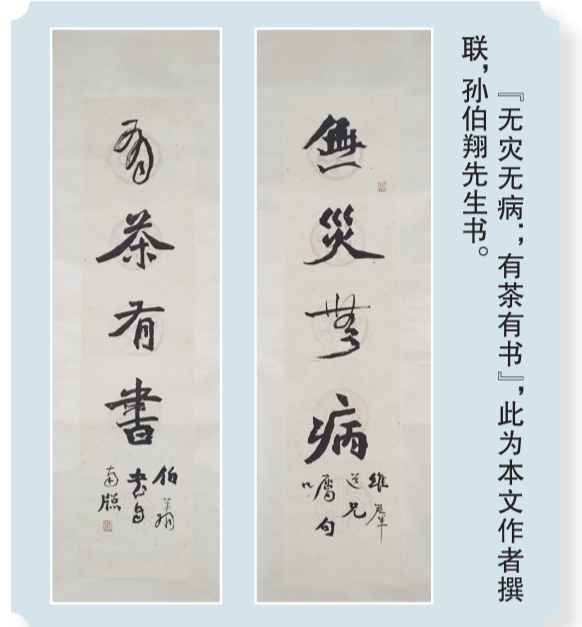 『无灾无病；有茶有书』，此为本文作者撰
联，孙伯翔先生书。
無災無病
道兄
囑句
有茶有書
伯翔
南牕